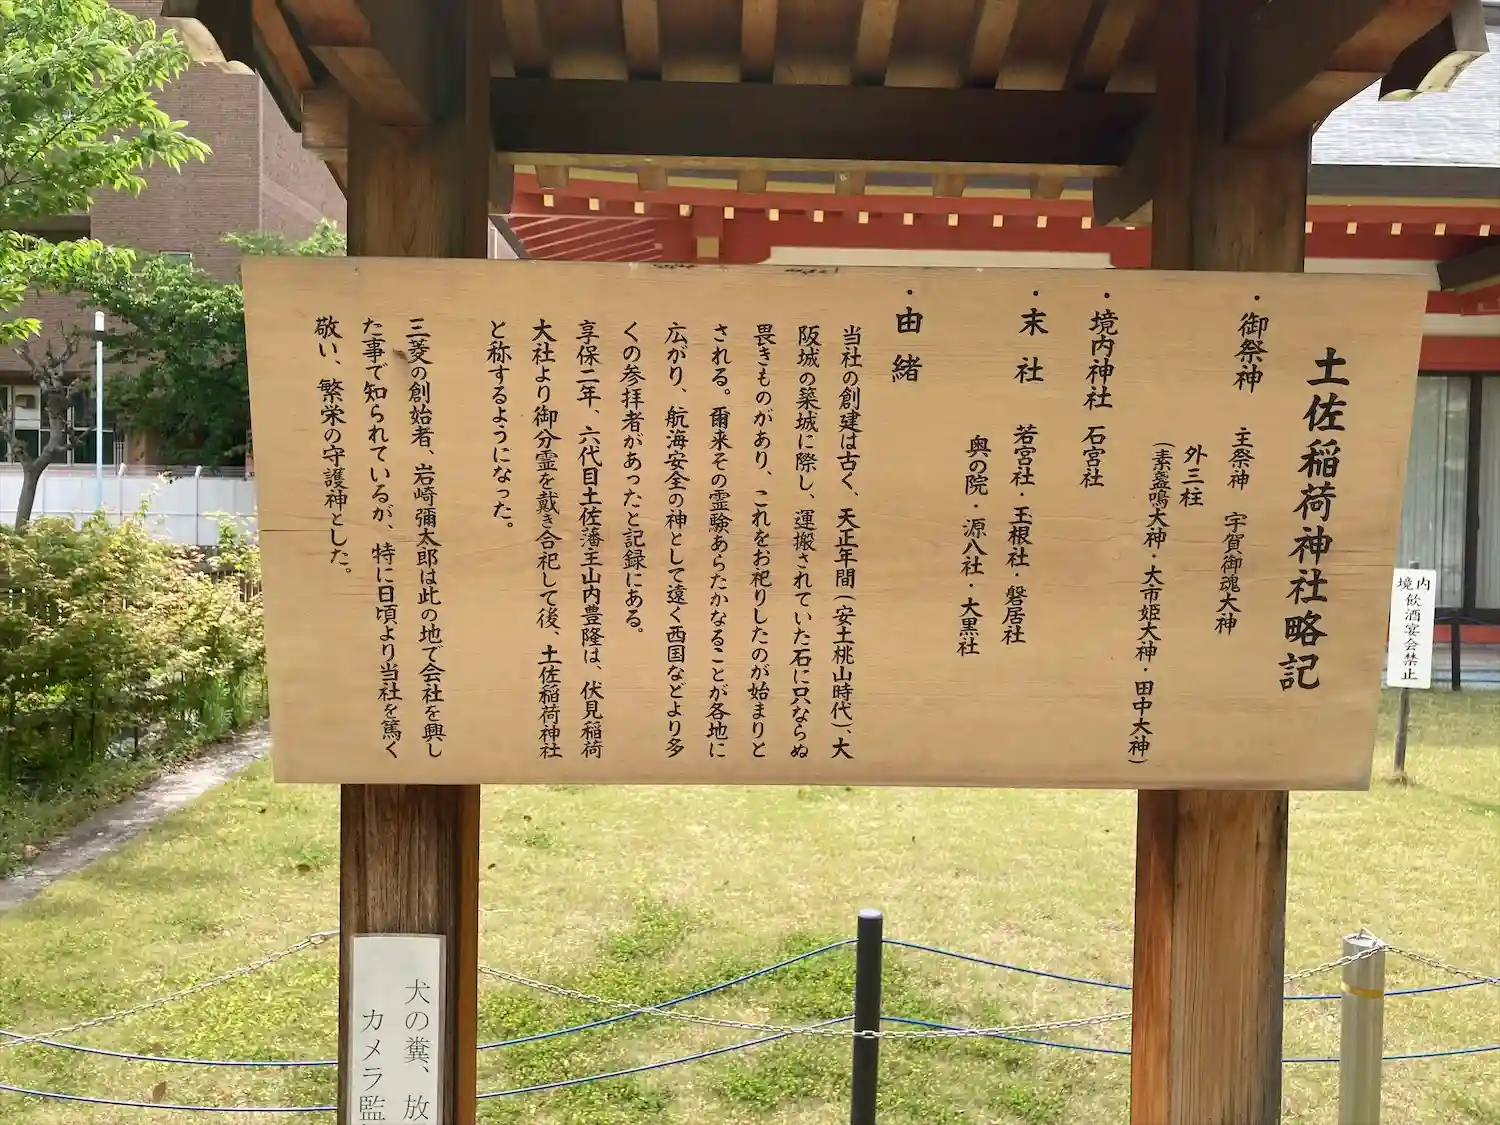 土佐稲荷神社略記
・御祭神 主祭神 宇賀御魂大神
外三柱
(素盞鳴大神・大市姫大神・田中大神)
・境内神社 石宮社
・末社 若宮社・玉根社・磐居社
奥の院・源八社・大黒社
・由緒
当社の創建は古く、天正年間(安土桃山時代)、大
阪城の築城に際し、運搬されていた石に只ならぬ
畏きものがあり、これをお祀りしたのが始まりと
される。爾来その霊験あらたかなることが各地に
広がり、航海安全の神として遠く西国などより多
くの参拝者があったと記録にある。
享保二年、六代目土佐藩主山内豊隆は、伏見稲荷
大社より御分霊を戴き合祀して後、土佐稲荷神社
と称するようになった。
三菱の創始者、岩崎彌太郎は此の地で会社を興し
た事で知られているが、特に日頃より当社を篤く
敬い、繁栄の守護神とした。
境内
飲酒宴会禁止
犬の糞、放
カメラ監